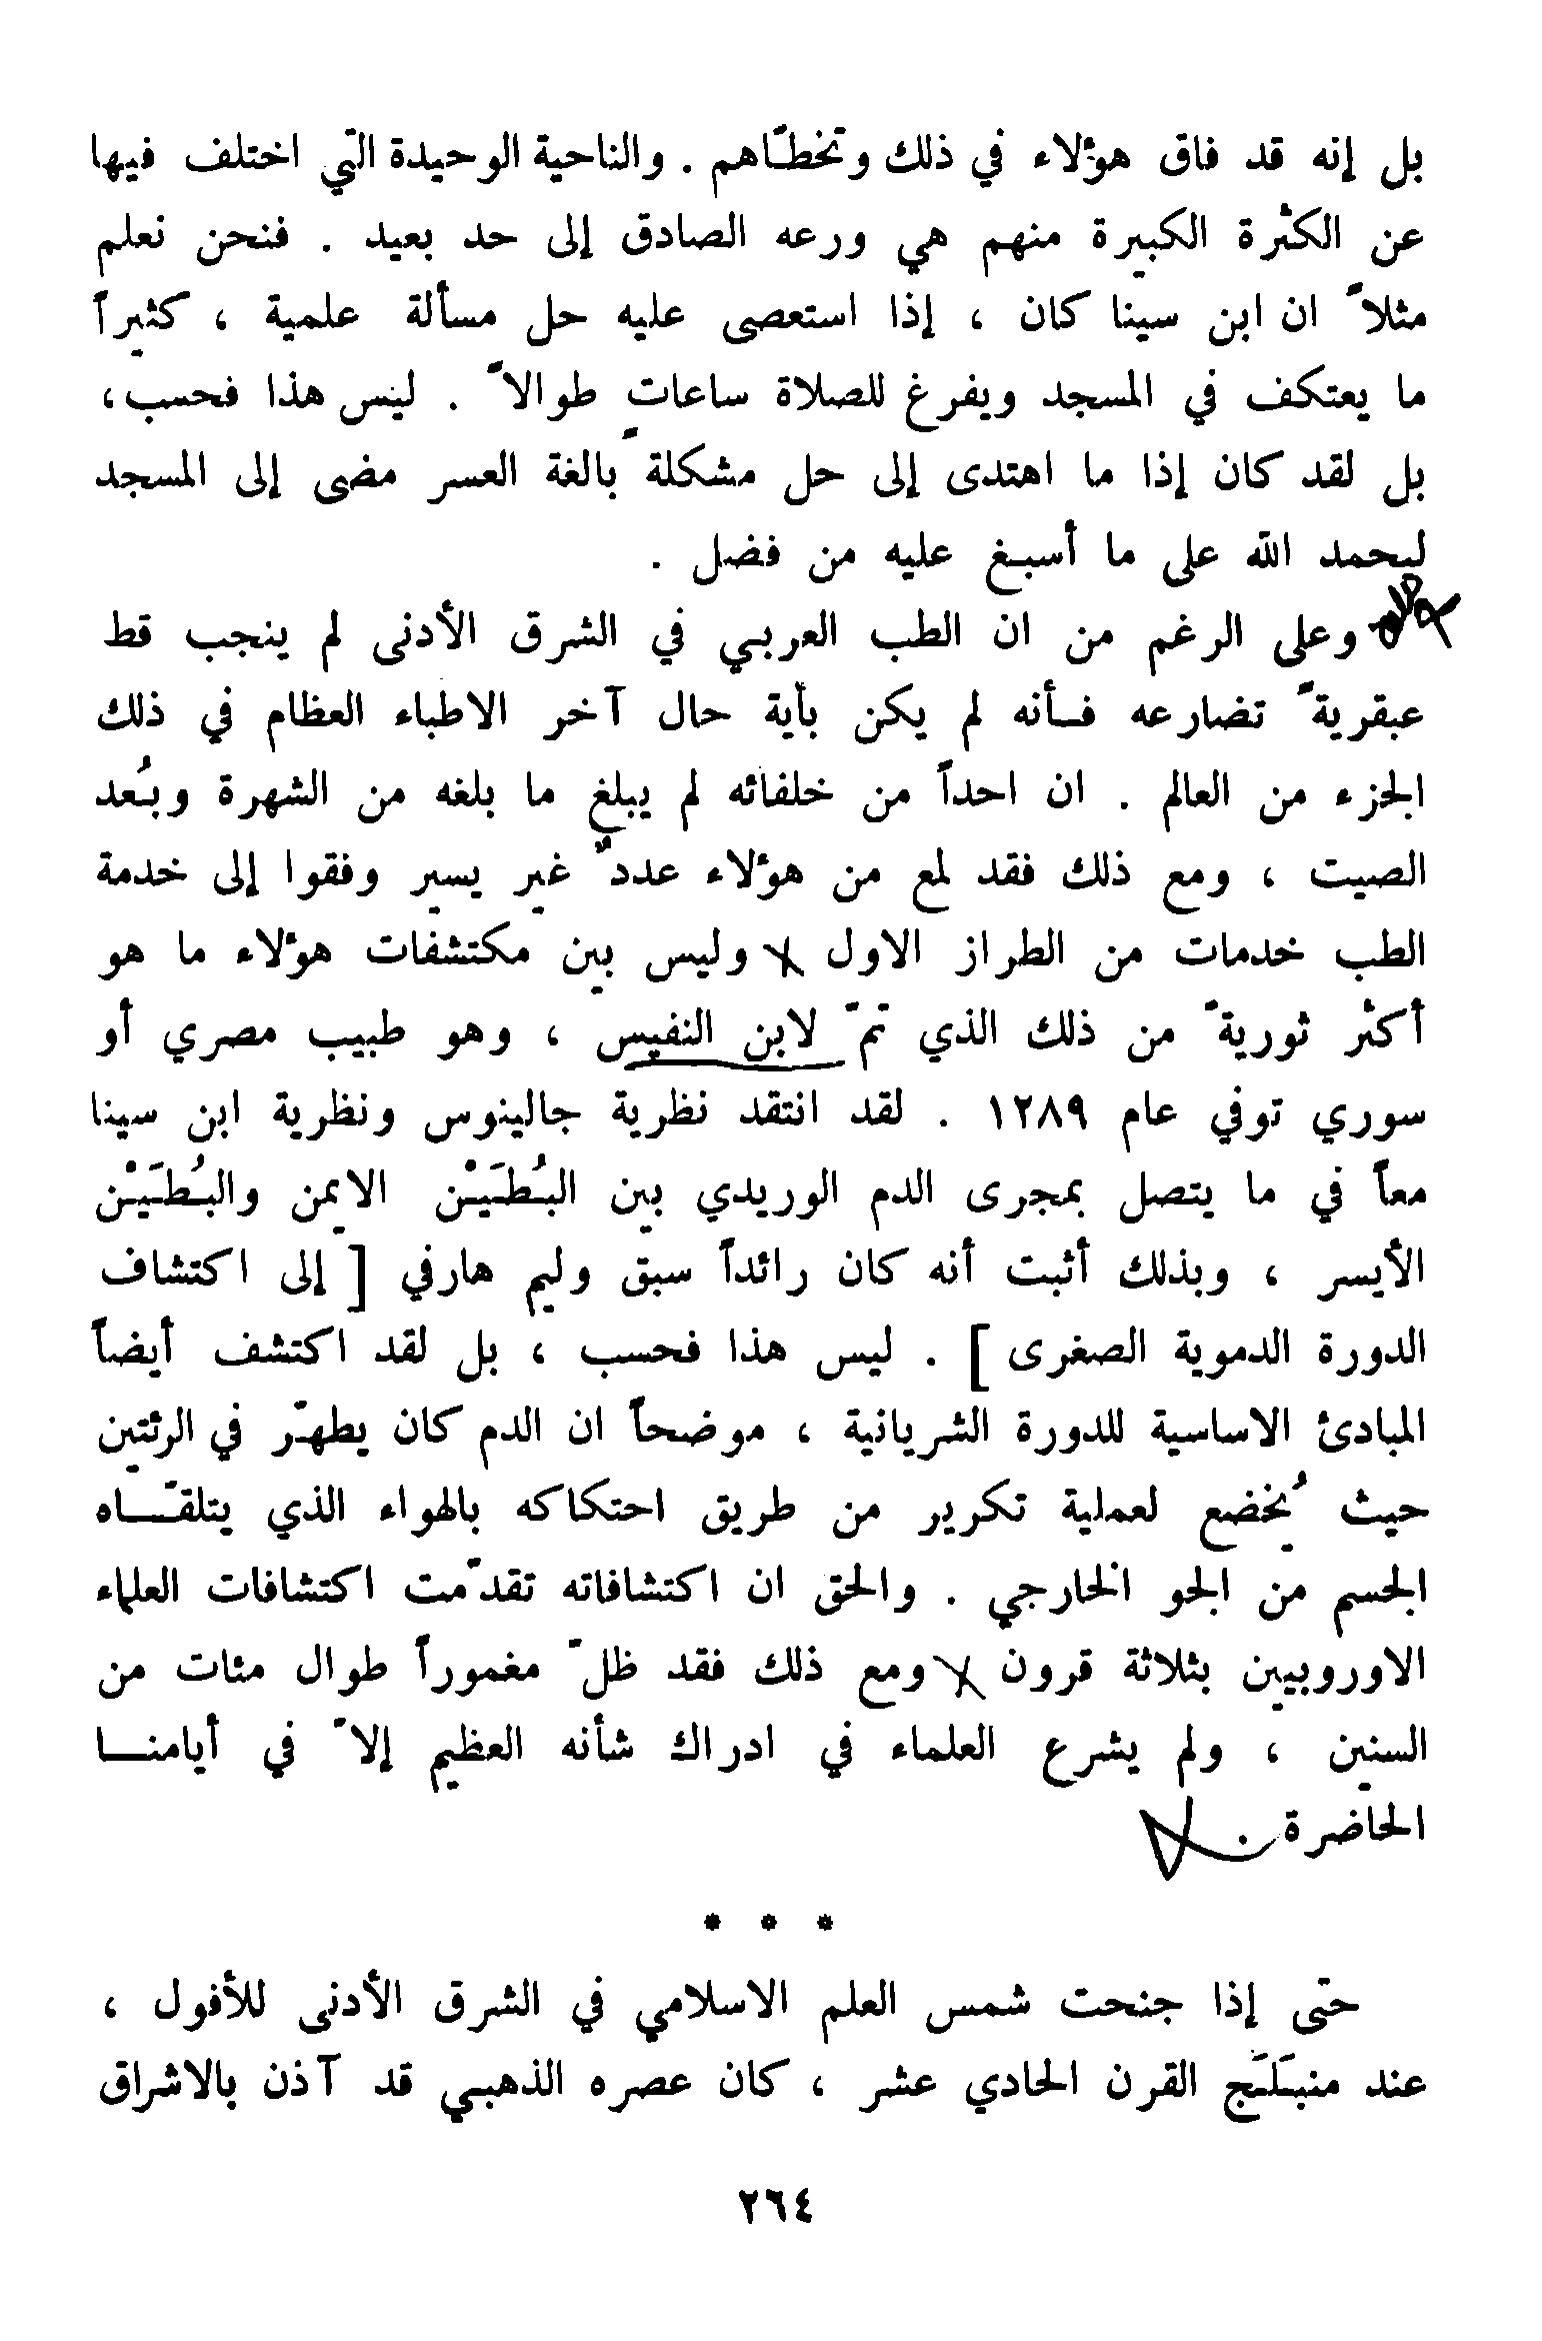 بل إنه قد فاق هؤلاء في ذلك وتخطّاهم . والناحية الوحيدة التي اختلف فيها
عن الكثرة الكبيرة منهم هي ورعه الصادق إلى حد بعيد . فنحن نعلم
مثلاً ان ابن سينا كان ، إذا استعصى عليه حل مسألة علمية ، كثيراً
ما يعتكف في المسجد ويفرغ للصلاة ساعاتٍ طوالاً . ليس هذا فحسب،
بل لقد كان إذا ما اهتدى إلى حل مشكلة بالغة العسر مضى إلى المسجد
ليحمد الله على ما أسبغ عليه من فضل .
وعلى الرغم من ان الطب العربي في الشرق الأدنى لم ينجب قط
عبقريةً تضارعه فأنه لم يكن بأية حال آخر الاطباء العظام في ذلك
الجزء من العالم . ان احداً من خلفائه لم يبلغ ما بلغه من الشهرة وبُعد
الصيت ، ومع ذلك فقد لمع من هؤلاء عددٌ غير يسير وفقوا إلى خدمة
الطب خدمات من الطراز الاول وليس بين مكتشفات هؤلاء ما هو
أكثر ثوريةً من ذلك الذي تمّ لابن النفيس ، وهو طبيب مصري أو
سوري توفي عام ١٢٨٩ . لقد انتقد نظرية جالينوس ونظرية ابن سينا
معاً في ما يتصل بمجرى الدم الوريدي بين البُطَيْن الايمن والبُطَيْن
الأيسر ، وبذلك أثبت أنه كان رائداً سبق وليم هارفي [ إلى اكتشاف
الدورة الدموية الصغرى ] . ليس هذا فحسب ، بل لقد اكتشف أيضاً
المبادئ الاساسية للدورة الشريانية ، موضحاً ان الدم كان يطهّر في الرئتين
حيث يُخضع لعملية تكرير من طريق احتكاكه بالهواء الذي يتلقّاه
الجسم من الجو الخارجي . والحق ان اكتشافاته تقدّمت اكتشافات العلماء
الاوروبيين بثلاثة قرون ومع ذلك فقد ظلّ مغموراً طوال مئات من
السنين ، ولم يشرع العلماء في ادراك شأنه العظيم إلاّ في أيامنا
الحاضرة .
* * *
حتى إذا جنحت شمس العلم الاسلامي في الشرق الأدنى للأفول ،
عند منبَلَج القرن الحادي عشر ، كان عصره الذهبي قد آذن بالاشراق
٢٦٤